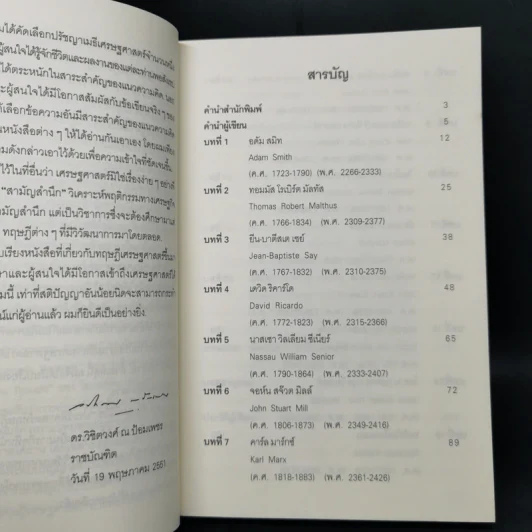 มได้คัดเลือกปรัชญาเมธีเศรษฐศาสตร์จำนวนหนึ่ง
ผู้สนใจได้รู้จักชีวิตและผลงานของแต่ละท่านพอสังเขป
ได้ตระหนักในสาระสำคัญของแนวความคิด และ
ะผู้สนใจได้มีโอกาสสัมผัสกับข้อเขียนจริงๆ ของ
ด้เลือกข้อความอันมีสาระสำคัญของแนวความคิด
นหนังสือต่างๆ ให้ได้อ่านกันเอาเอง โดยผม
มดังกล่าวเอาไว้ด้วยเพื่อความเข้าใจที่ชัดเจนขึ้น
ไว้ในที่อื่นว่า เศรษฐศาสตร์มิใช่เรื่องง่ายๆ
"สามัญสำนึก" วิเคราะห์พฤติกรรมทางเศรษฐกิจ
ามัญสำนึก แต่เป็นวิชาการซึ่งจะต้องศึกษา
ทฤษฎีต่างๆ ที่มีวิวัฒนาการมาโดยตลอด
บเรียงหนังสือที่เกี่ยวกับทฤษฎีเศรษฐศาสตร์ขึ้นมา
าและผู้สนใจได้มีโอกาสเข้าถึงเศรษฐศาสตร์ได้
มนี้ เท่าที่สติปัญญาอันน้อยนิดจะสามารถกระทำ
น์แก่ผู้อ่านแล้ว ผมก็ยินดีเป็นอย่างยิ่ง
ดร.วิชิตวงศ์ ณ ป้อมเพชร
ราชบัณฑิต
วันที่ 19 พฤษภาคม 2551
สารบัญ
คำนำสำนักพิมพ์ 3
คำนำผู้เขียน 5
บทที่ 1 อดัม สมิท 12
Adam Smith
(ค.ศ. 1723-1790) (พ.ศ. 2266-2333)
บทที่ 2 ทอมมัส โรเบิร์ต มัลทัส 25
Thomas Robert Malthus
(ค.ศ. 1766-1834) (พ.ศ. 2309-2377)
บทที่ 3 ยีน-บาติสเต เซย์ 38
Jean-Baptiste Say
(ค.ศ. 1767-1832) (พ.ศ. 2310-2375)
บทที่ 4 เดวิด ริคาร์โด 48
David Ricardo
(ค.ศ. 1772-1823) (พ.ศ. 2315-2366)
บทที่ 5 นาสเซา วิลเลียม ซีเนียร์ 65
Nassau William Senior
(ค.ศ. 1790-1864) (พ.ศ. 2333-2407)
บทที่ 6 จอห์น สจ๊วต มิลล์ 72
John Stuart Mill
(ค.ศ. 1806-1873) (พ.ศ. 2349-2416)
บทที่ 7 คาร์ล มาร์กซ์ 89
Karl Marx
(ค.ศ. 1818-1883) (พ.ศ. 2361-2426)